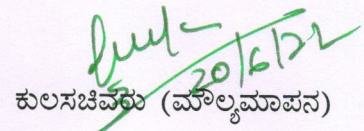 20/6/22
ಕುಲಸಚಿವರು (ಮೌಲ್ಯಮಾಪನ)